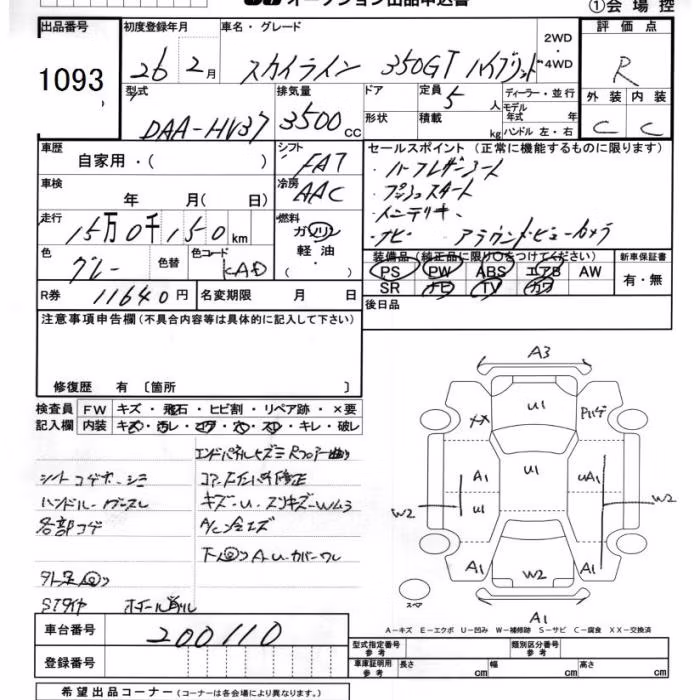 オークション出品申込書
①会場控
出品番号 初度登録年月 車名・グレード 評価点
1093 26 2月 スカイライン 350GT ハイブリッド 2WD・4WD R
型式 排気量 ドア 定員 5人 ディーラー・並行 外装 内装
DAA-HV37 3500cc 形状 積載 kg モデル年式 年式 ハンドル 左・右 C C
車歴 シフト セールスポイント (正常に機能するものに限ります)
自家用・( ) FAT ・ハーフレザーシート
車検 冷房 ・プッシュスタート
年 月( 日) AAC ・インテリキー
走行 燃料 ・ナビ・アラウンドビューカメラ
15万0千150km ガソリン
色 色替 色コード 軽油・
グレー KAD ( )
装備品 (純正品に限り○をつけてください) 新車保証書
PS PW ABS エアB AW 有・無
SR ナビ TV カワ
R券 11640円 名変期限 月 日 後日品
注意事項申告欄(不具合内容等は具体的に記入して下さい)
修復歴 有 〔箇所 〕
検査員 FW キズ・飛石・ヒビ割・リペア跡・×要
記入欄 内装 キズ・汚レ・コゲ・穴・スレ・キレ・破レ
シートコゲ穴・シミ
各部コゲ
キズ・U・スリキズ・W4.3
STタイヤ
A3
U1
U1
A1 uA1
U1
W2 W2
A1 A1
W2
スペア
A1
A-キズ E-エクボ U-凹み W-補修跡 S-サビ C-腐食 XX-交換済
車台番号 200110
登録番号
型式指定番号 参考 類別区分番号 参考
車庫証明用 参考 長さ cm 幅 cm 高さ cm
希望出品コーナー(コーナーは各会場により異なります。)